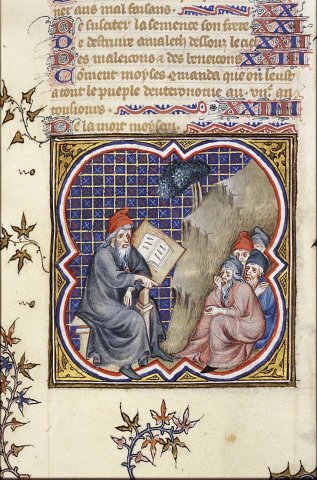 ner aus mal faisans XXI
De susciter la semence son frere XXI
De destruire amalech dessouz le ciel XXII
Des maleicons et des beneicons XXIII
Cõment moyses cõmanda que on leust
a tout le pueple deuteronome au .vii. an
tousiours XXIIII
De la mort moysen